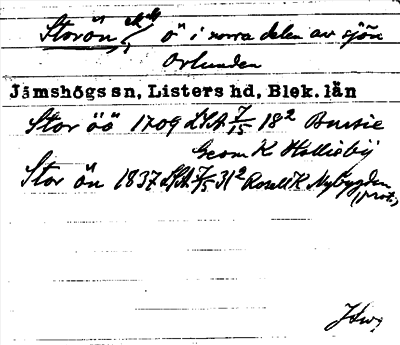 Storön, ö i norra delen av sjön
Orlunden
Jämshögs sn, Listers hd, Blek. län
Stor öö 1709 LSA 7/15 18² Bursie
Geom K Hollieby
Stor ön 1837 LSA 7/15 31² Roself K Nybygden
(prot.)